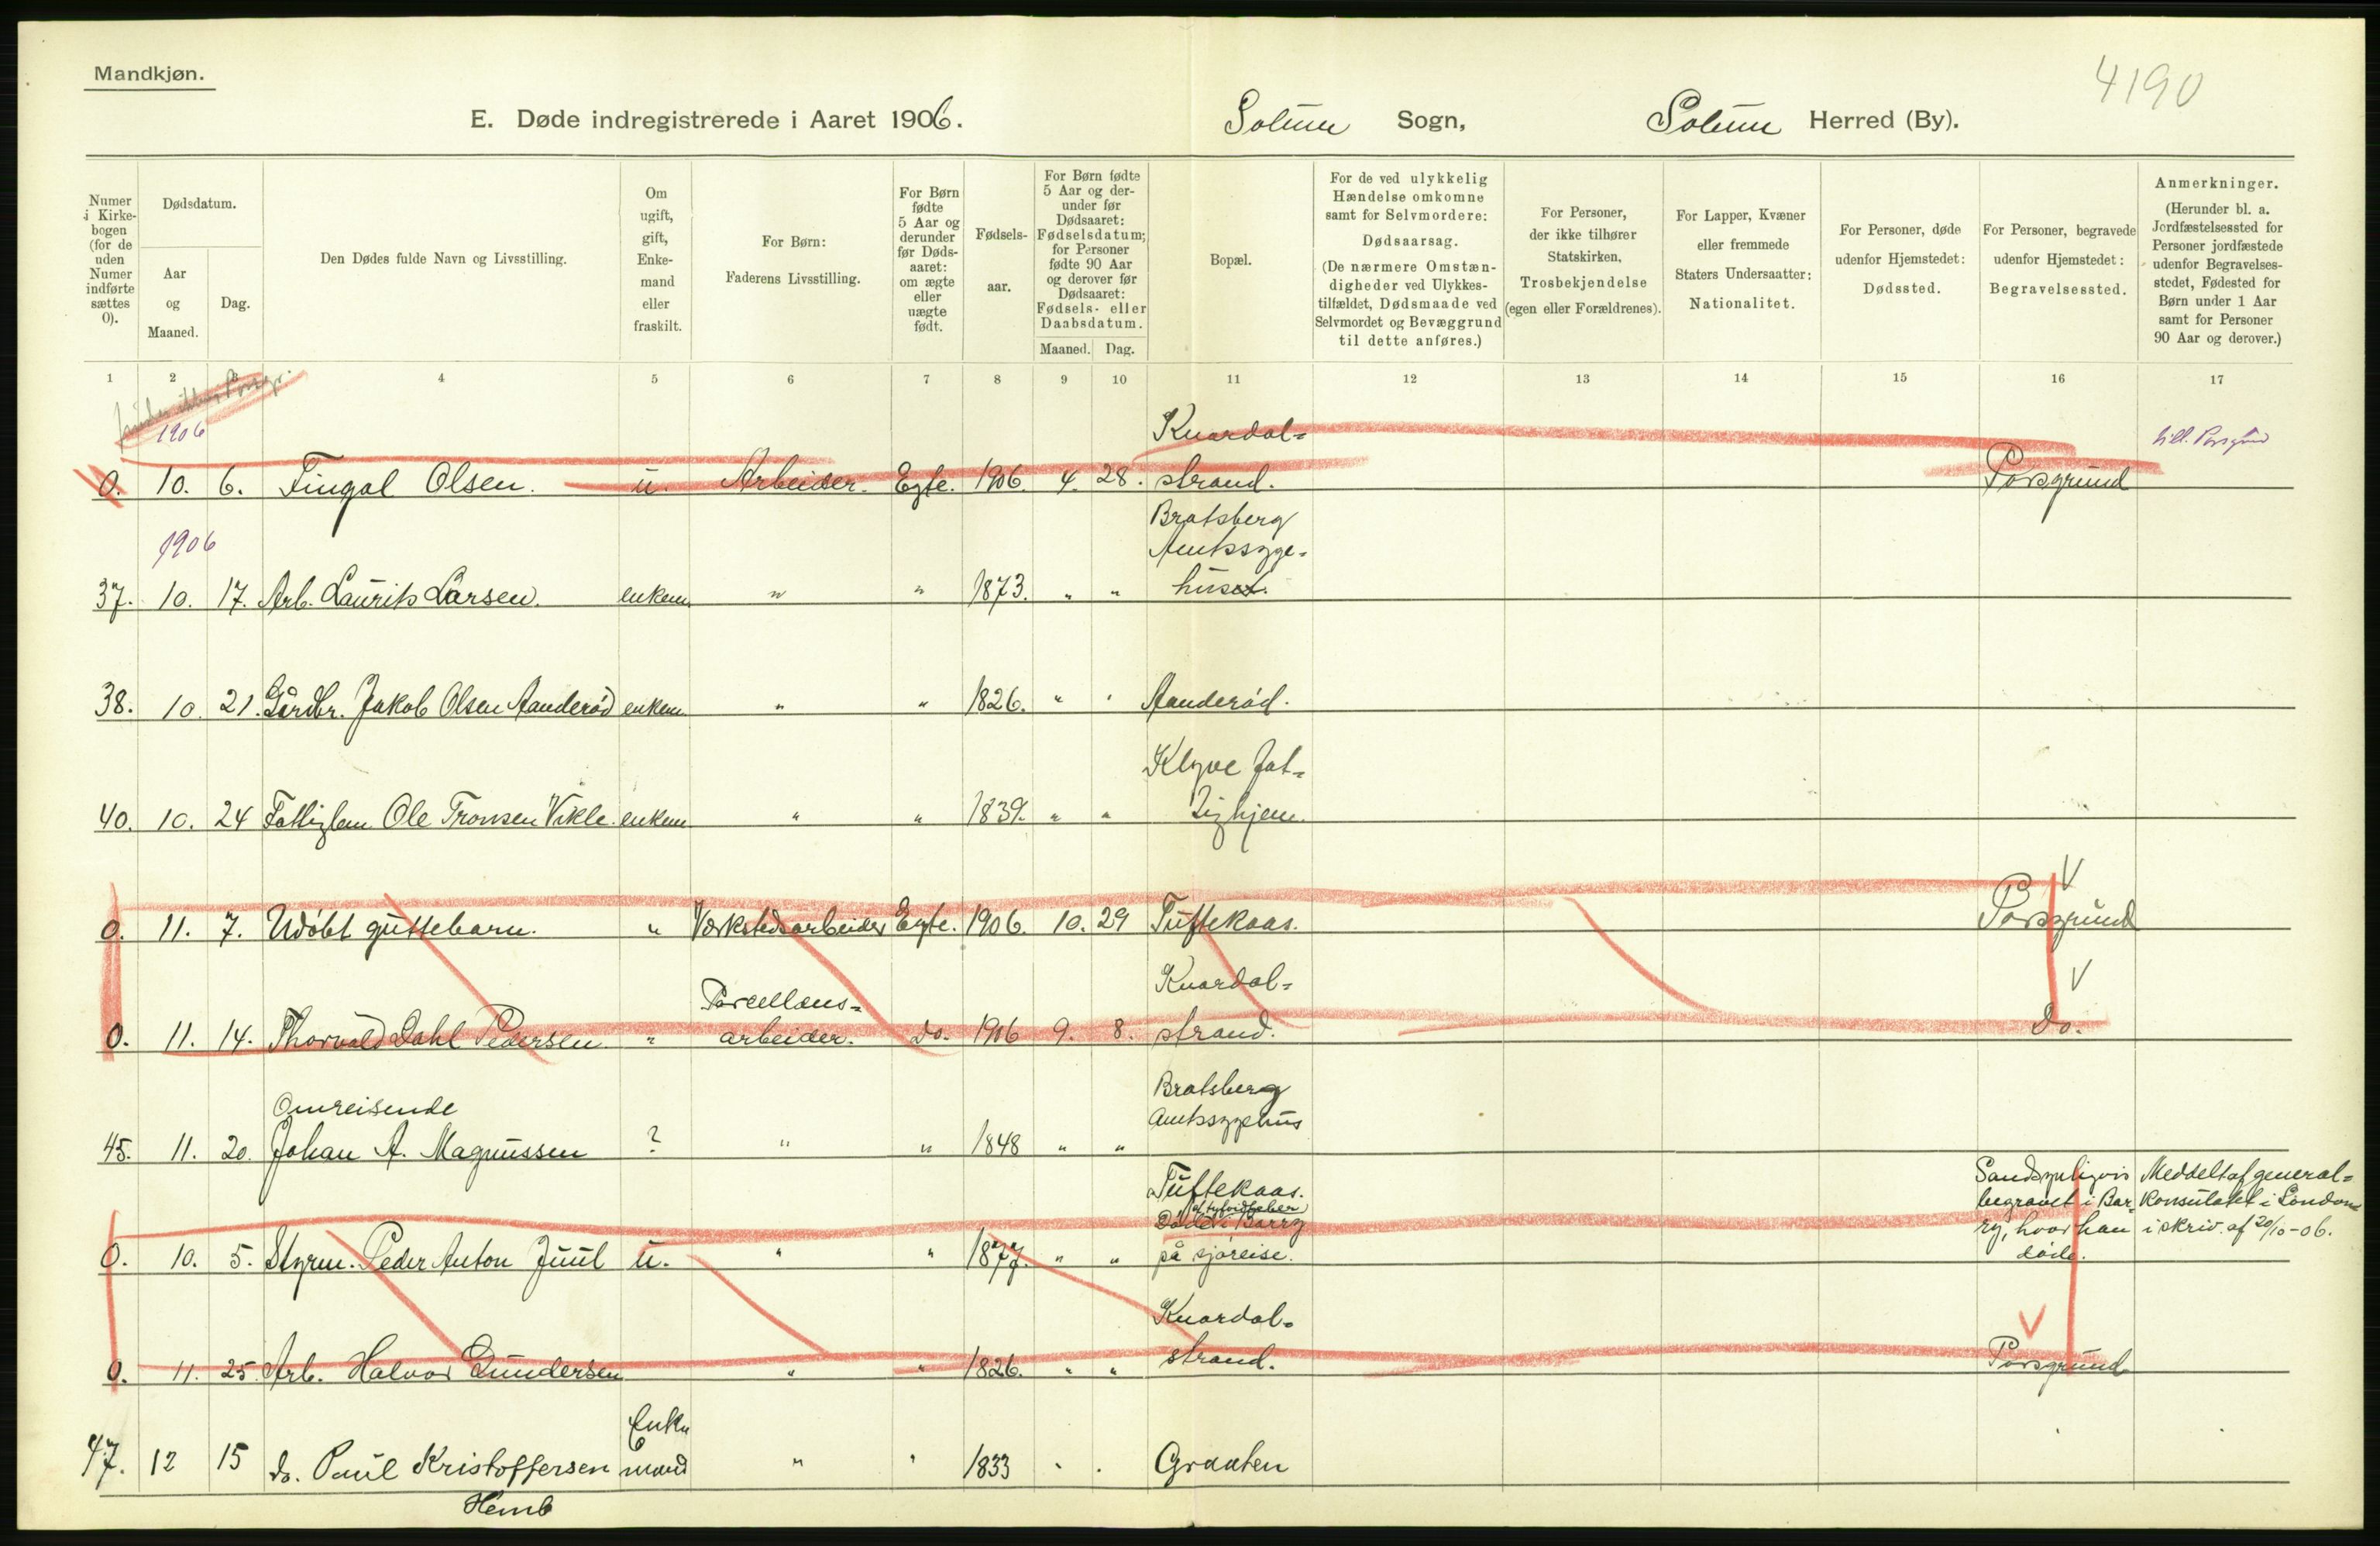 Mandkjøn.
4190
E. Døde indregistrerede i Aaret 1906. Solum Sogn, Solum Herred (By).
Numer i Kirkebogen (for de uden Numer indførte sættes 0).
Dødsdatum.
Aar og Maaned.
Dag.
Den Dødes fulde Navn og Livsstilling.
Om ugift, gift, Enkemand eller fraskilt.
For Børn: Faderens Livsstilling.
For Børn fødte 5 Aar og derunder før Dødsaaret: om ægte eller uægte født.
Fødselsaar.
For Børn fødte 5 Aar og derunder før Dødsaaret: Fødselsdatum; for Personer fødte 90 Aar og derover før Dødsaaret: Fødsels- eller Daabsdatum.
Maaned. Dag.
Bopæl.
For de ved ulykkelig Hændelse omkomne samt for Selvmordere: Dødsaarsag. (De nærmere Omstændigheder ved Ulykkestilfældet, Dødsmaade ved Selvmordet og Bevæggrund til dette anføres.)
For Personer, der ikke tilhører Statskirken, Trosbekjendelse (egen eller Forældrenes).
For Lapper, Kvæner eller fremmede Staters Undersaatter: Nationalitet.
For Personer, døde udenfor Hjemstedet: Dødssted.
For Personer, begravede udenfor Hjemstedet: Begravelsessted.
Anmerkninger. (Herunder bl. a. Jordfæstelsessted for Personer jordfæstede udenfor Begravelsesstedet, Fødested for Børn under 1 Aar samt for Personer 90 Aar og derover.)
1 2 3 4 5 6 7 8 9 10 11 12 13 14 15 16 17
1906
Knardal=
0. 10. 6. Fingal Olsen. u. Arbeider. Egte. 1906. 4. 28. strand. Porsgrund
till. Porsgrund
1906
Bratsberg
Amtssyge=
37. 10. 17. Arb. Laurits Larsen. enkem. " " 1873. " " huset.
38. 10. 21. Gårdbr. Jakob Olsen Aanderød enkem " " 1826. " " Aanderød.
Klyve Fat=
40. 10. 24 Fattiglem Ole Tronsen Vikle. enkem " " 1839. " " tighjem.
V
0. 11. 7. Udøbt guttebarn. " Værkstedsarbeider Egte. 1906. 10. 29 Tuftekaas. Porsgrund
Porcellæns=
Knardal=
V
0. 11. 14. Thorvald Dahl Pedersen. " arbeider. Do. 1906 9. 8. strand. Do.
Omreisende
Bratsberg
Amtssygehus
45. 11. 20. Johan A. Magnussen ? " " 1848 " "
Tuftekaas.
af tyfoidfeber
Døde i Barry
0. 10. 5. Styrm. Peder Anton Juul u. " " 1877. " " på sjøreise.
Sandsynligvis
begravet i Bar=
ry, hvor han
døde.
Meddelt af general=
konsulatet i London
i skriv. af 20/10-06.
Knardal=
V
0. 11. 25. Arb. Halvor Gundersen " " 1826. " " strand. Porsgrund
Enke
47. 12 15 do. Paul Kristoffersen mand " " 1833 " " Graaten